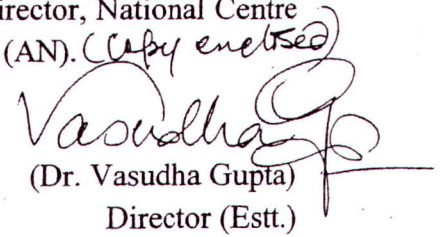 irector, National Centre
(AN). (Copy enclosed)
Vasudha G
(Dr. Vasudha Gupta)
Director (Estt.)